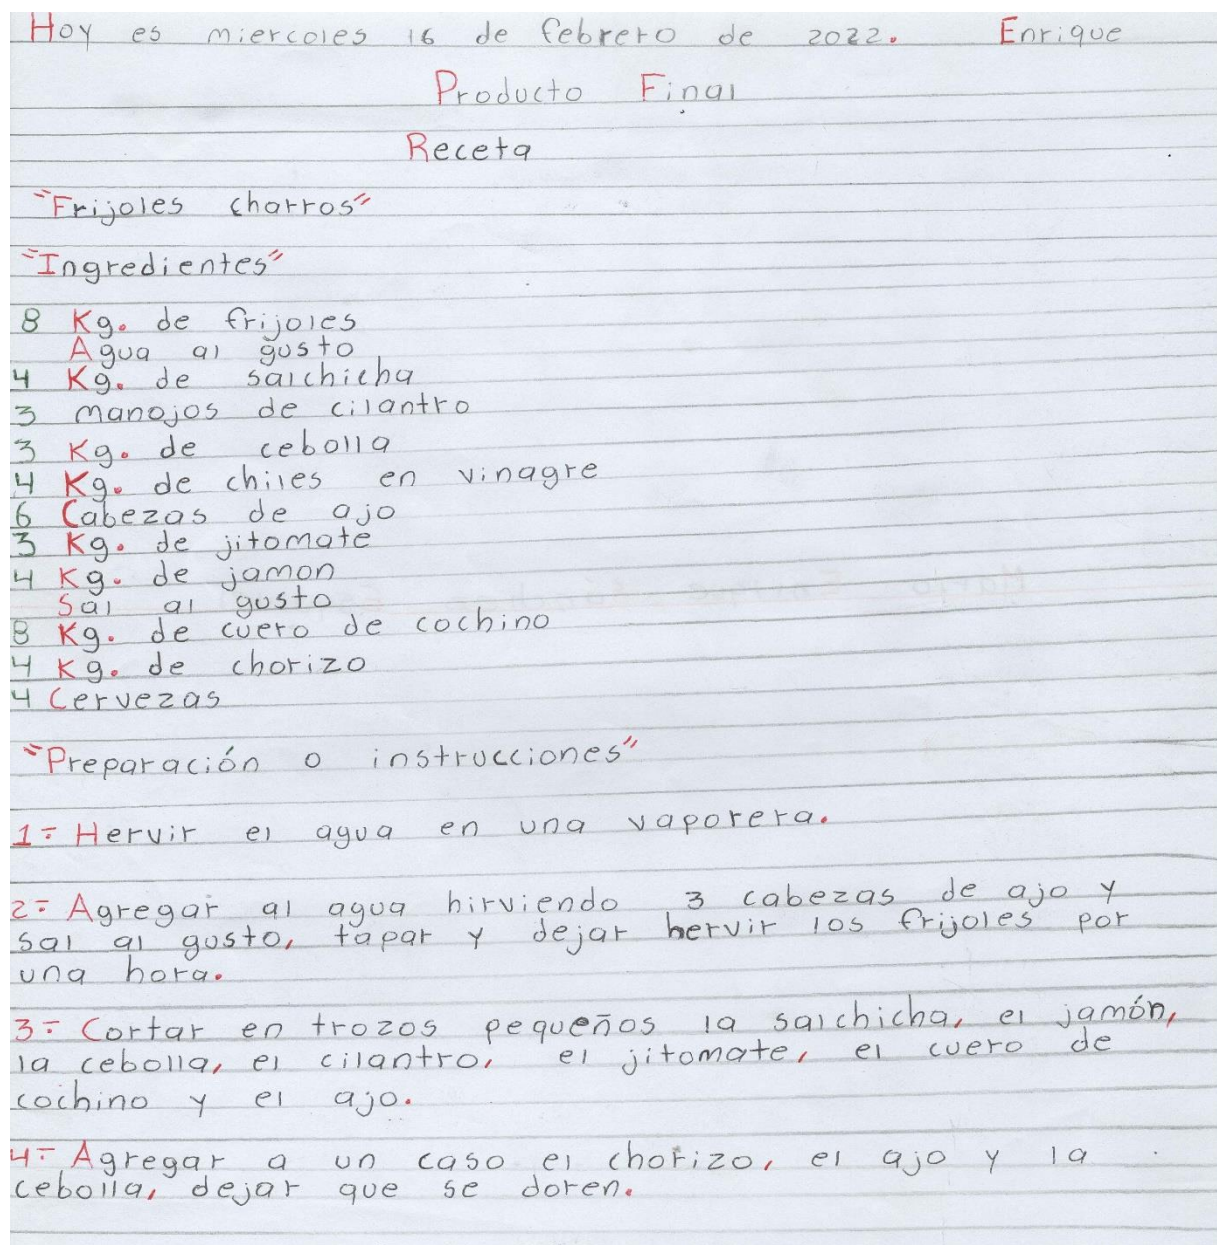 Hoy es miercoles 16 de febrero de 2022. Enrique
Producto Final
Receta
"Frijoles charros"
"Ingredientes"
8 Kg. de frijoles
Agua al gusto
4 Kg. de salchicha
3 manojos de cilantro
3 Kg. de cebolla
4 Kg. de chiles en vinagre
6 Cabezas de ajo
3 Kg. de jitomate
4 Kg. de jamon
Sal al gusto
8 Kg. de cuero de cochino
4 Kg. de chorizo
4 Cervezas
"Preparación o instrucciones"
1.- Hervir el agua en una vaporera.
2.- Agregar al agua hirviendo 3 cabezas de ajo y
sal al gusto, tapar y dejar hervir los frijoles por
una hora.
3.- Cortar en trozos pequeños la salchicha, el jamón,
la cebolla, el cilantro, el jitomate, el cuero de
cochino y el ajo.
4.- Agregar a un caso el chorizo, el ajo y la
cebolla, dejar que se doren.